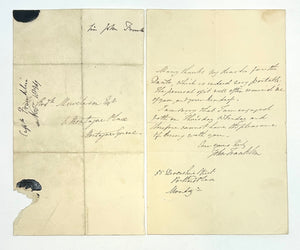 Sir John Frank
Captn Franklin
Novr 1824
Captn Mewburn Esqr
Montague Place
Montague Square
Many thanks my dear Sir for the
Dante, which is indeed very portable
The perusal of it will often remind me
of you and your kindness.
I am sorry that I am engaged
both on Thursday & Friday and
therefore cannot have the pleasure
of being with you.
Ever yours truly
John Franklin
55 Devonshire Street
Portland Place
Monday